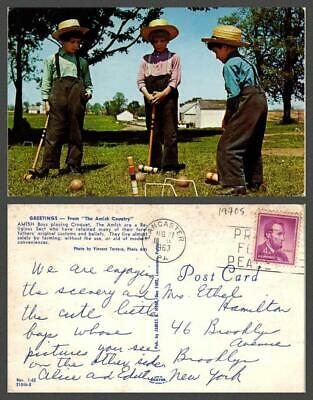 GREETINGS — From "The Amish Country"
AMISH Boys playing Croquet. The Amish are a Re-
ligious Sect who have retained many of their fore-
fathers' original customs and beliefs. They live almost
solely by farming; without the use, or aid of modern
conveniences.
Photo by Vincent Tortora, Photo Arts
We are enjoying
the scenery and
the cute little
boys whose
pictures you see
on the other side.
Alice and Edith
PUB. BY JAMES E. HESS
1970S
LANCASTER
1963
PA.
PRAY
FOR
PEACE
Post Card
Mrs. Ethel
Hamilton
46 Brooklyn
Avenue
Brooklyn
New York